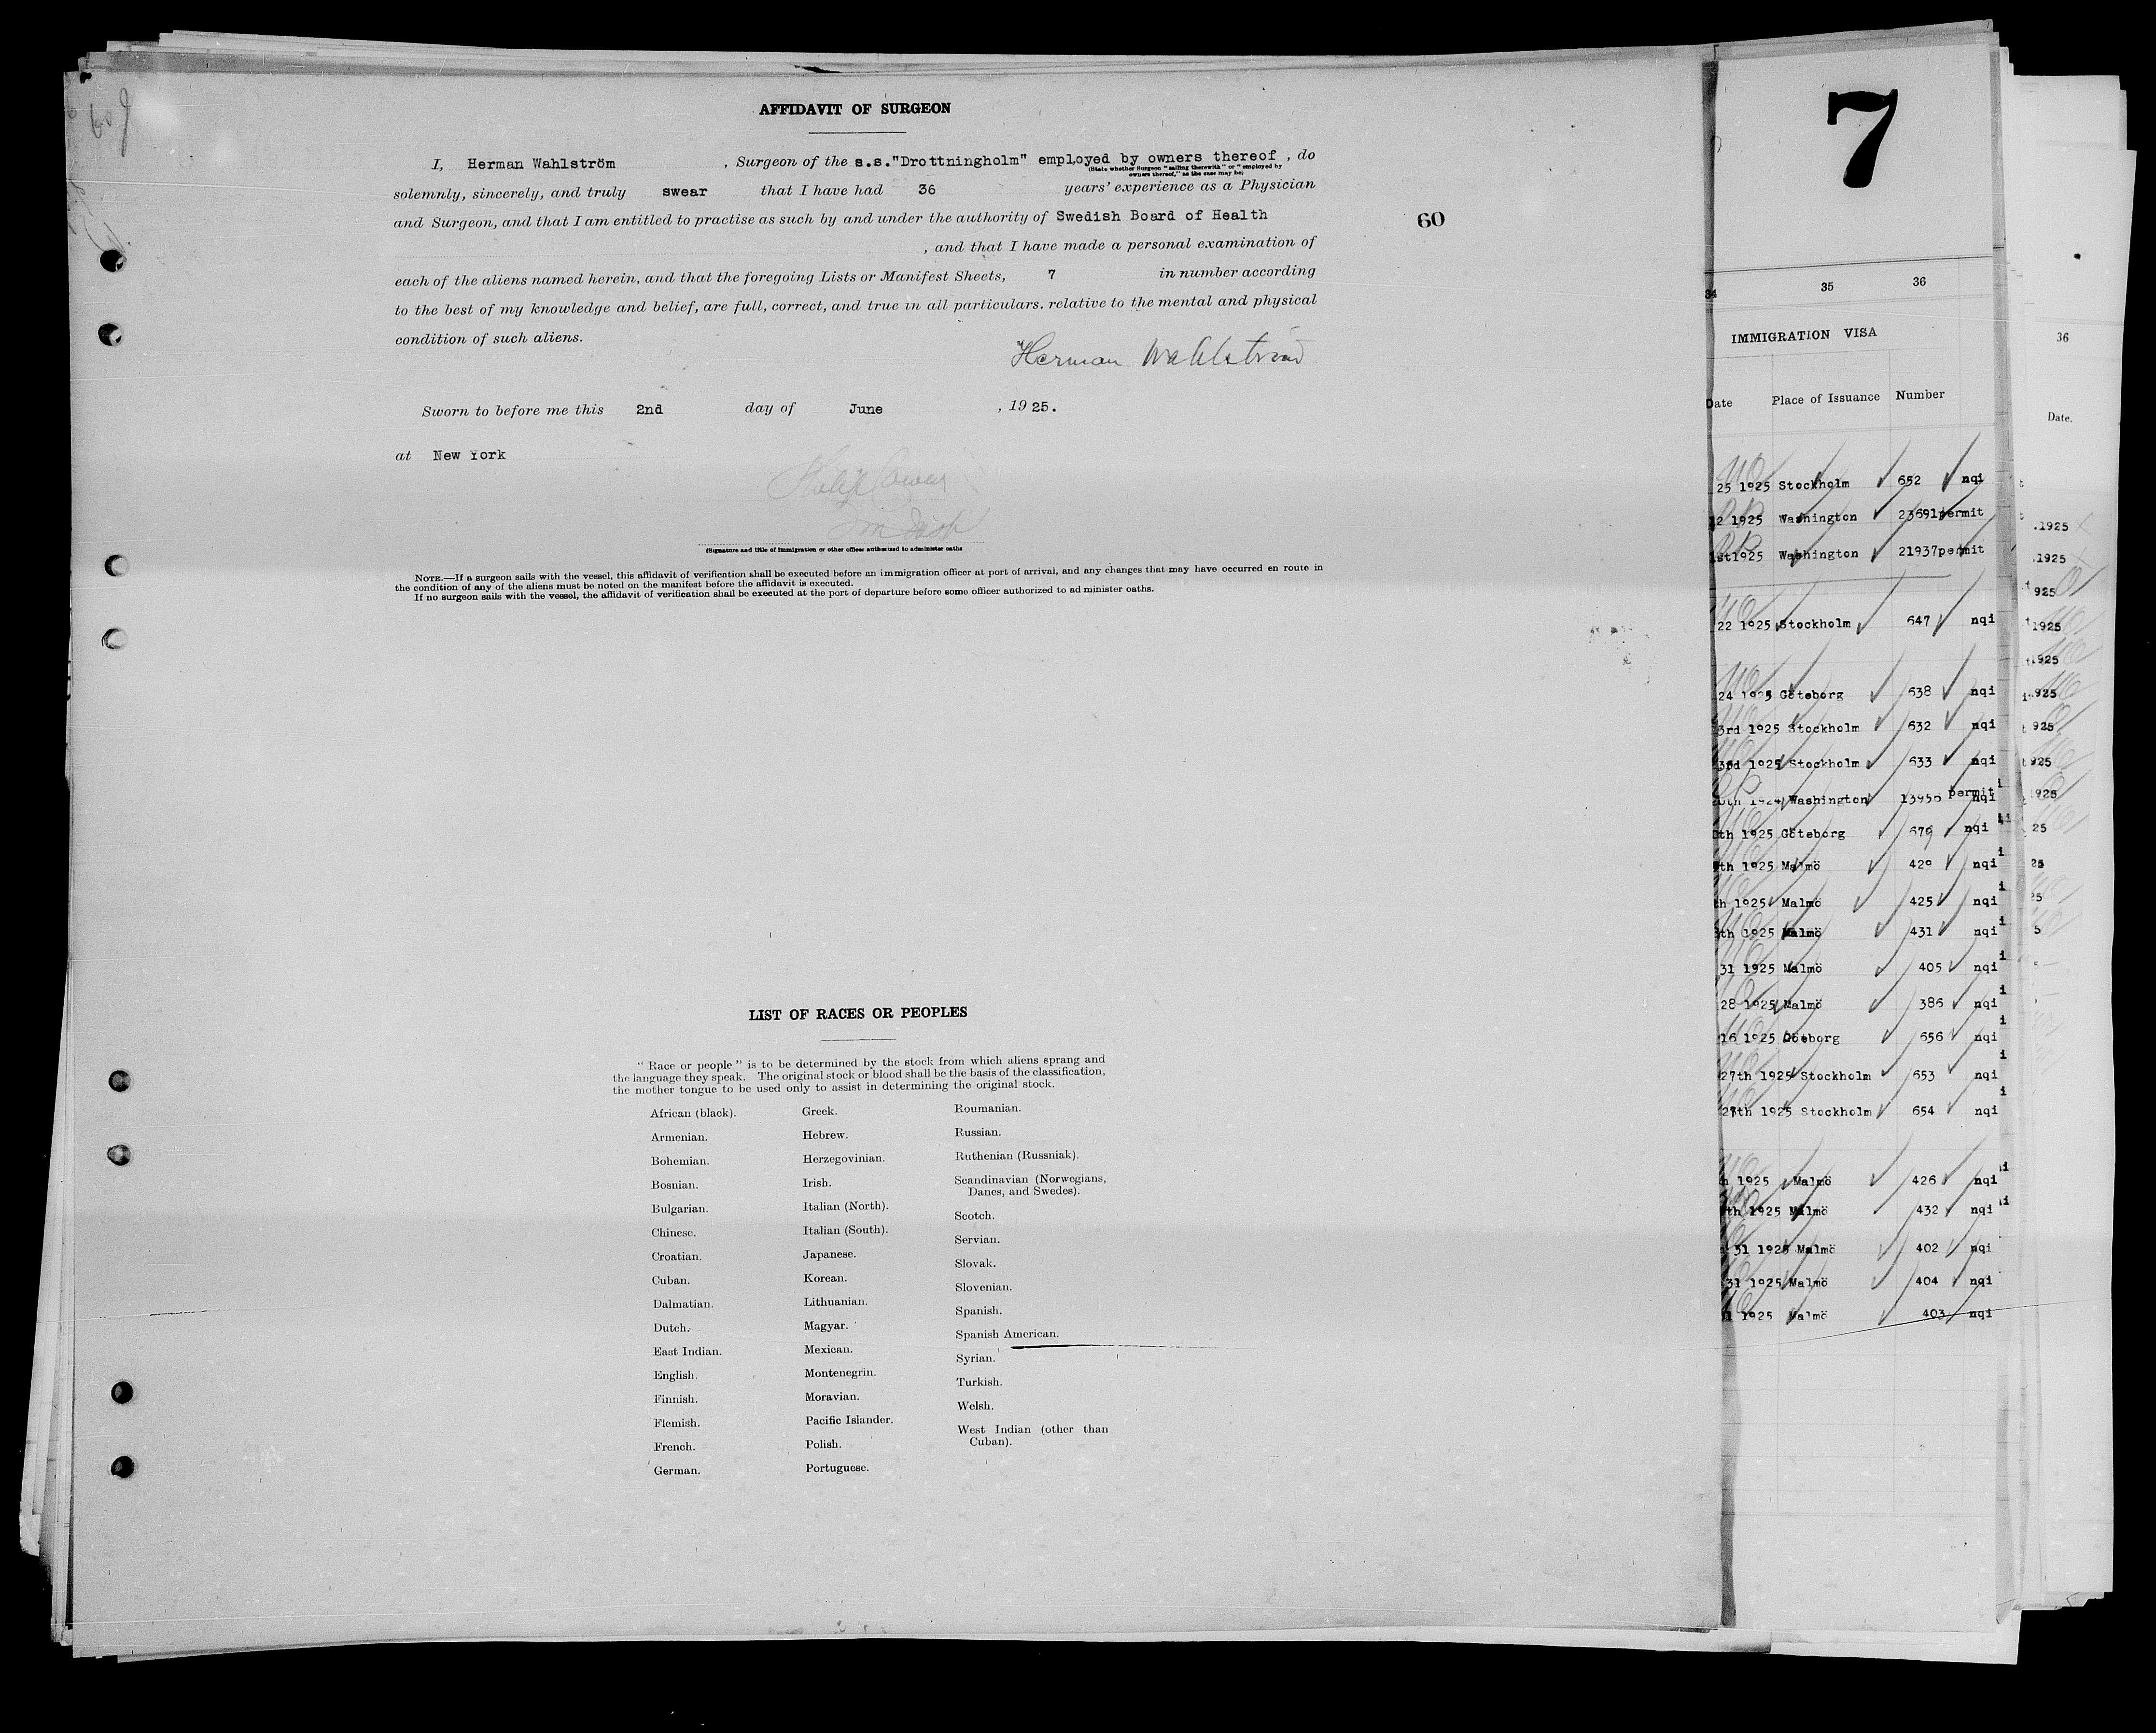 AFFIDAVIT OF SURGEON
I, Herman Wahlström , Surgeon of the s.s."Drottningholm" employed by owners thereof , do
(State whether Surgeon "sailing therewith" or "employed by
owners thereof," as the case may be)
solemnly, sincerely, and truly swear that I have had 36 years' experience as a Physician
and Surgeon, and that I am entitled to practise as such by and under the authority of Swedish Board of Health
60
, and that I have made a personal examination of
each of the aliens named herein, and that the foregoing Lists or Manifest Sheets, 7 in number according
to the best of my knowledge and belief, are full, correct, and true in all particulars, relative to the mental and physical
condition of such aliens.
Herman Wahlström
Sworn to before me this 2nd day of June , 1925.
at New York
(Signature and title of immigration or other officer authorized to administer oaths
NOTE.—If a surgeon sails with the vessel, this affidavit of verification shall be executed before an immigration officer at port of arrival, and any changes that may have occurred en route in
the condition of any of the aliens must be noted on the manifest before the affidavit is executed.
If no surgeon sails with the vessel, the affidavit of verification shall be executed at the port of departure before some officer authorized to ad minister oaths.
LIST OF RACES OR PEOPLES
" Race or people " is to be determined by the stock from which aliens sprang and
the language they speak. The original stock or blood shall be the basis of the classification,
the mother tongue to be used only to assist in determining the original stock.
African (black).
Armenian.
Bohemian.
Bosnian.
Bulgarian.
Chinese.
Croatian.
Cuban.
Dalmatian.
Dutch.
East Indian.
English.
Finnish.
Flemish.
French.
German.
Greek.
Hebrew.
Herzegovinian.
Irish.
Italian (North).
Italian (South).
Japanese.
Korean.
Lithuanian.
Magyar.
Mexican.
Montenegrin.
Moravian.
Pacific Islander.
Polish.
Portuguese.
Roumanian.
Russian.
Ruthenian (Russniak).
Scandinavian (Norwegians,
Danes, and Swedes).
Scotch.
Servian.
Slovak.
Slovenian.
Spanish.
Spanish American.
Syrian.
Turkish.
Welsh.
West Indian (other than
Cuban).
7
34 35 36
IMMIGRATION VISA
Date Place of Issuance Number
25 1925 Stockholm 652 nqi
12 1925 Washington 23691permit
1st1925 Washington 21937permit
22 1925 Stockholm 647 nqi
24 1925 Göteborg 638 nqi
3rd 1925 Stockholm 632 nqi
3rd 1925 Stockholm 633 nqi
1924 Washington permit nqi
th 1925 Göteborg 679 nqi
th 1925 Malmö 429 nqi
th 1925 Malmö 425 nqi
th 1925 Malmö 431 nqi
31 1925 Malmö 405 nqi
28 1925 Malmö 386 nqi
16 1925 Göteborg 656 nqi
27th 1925 Stockholm 653 nqi
27th 1925 Stockholm 654 nqi
1925 Malmö 426 nqi
th 1925 Malmö 432 nqi
31 1925 Malmö 402 nqi
31 1925 Malmö 404 nqi
1 1925 Malmö 403 nqi
36
Date.
.1925
.1925
925
1925
1925
925
925
925
1925
25
25
25
5